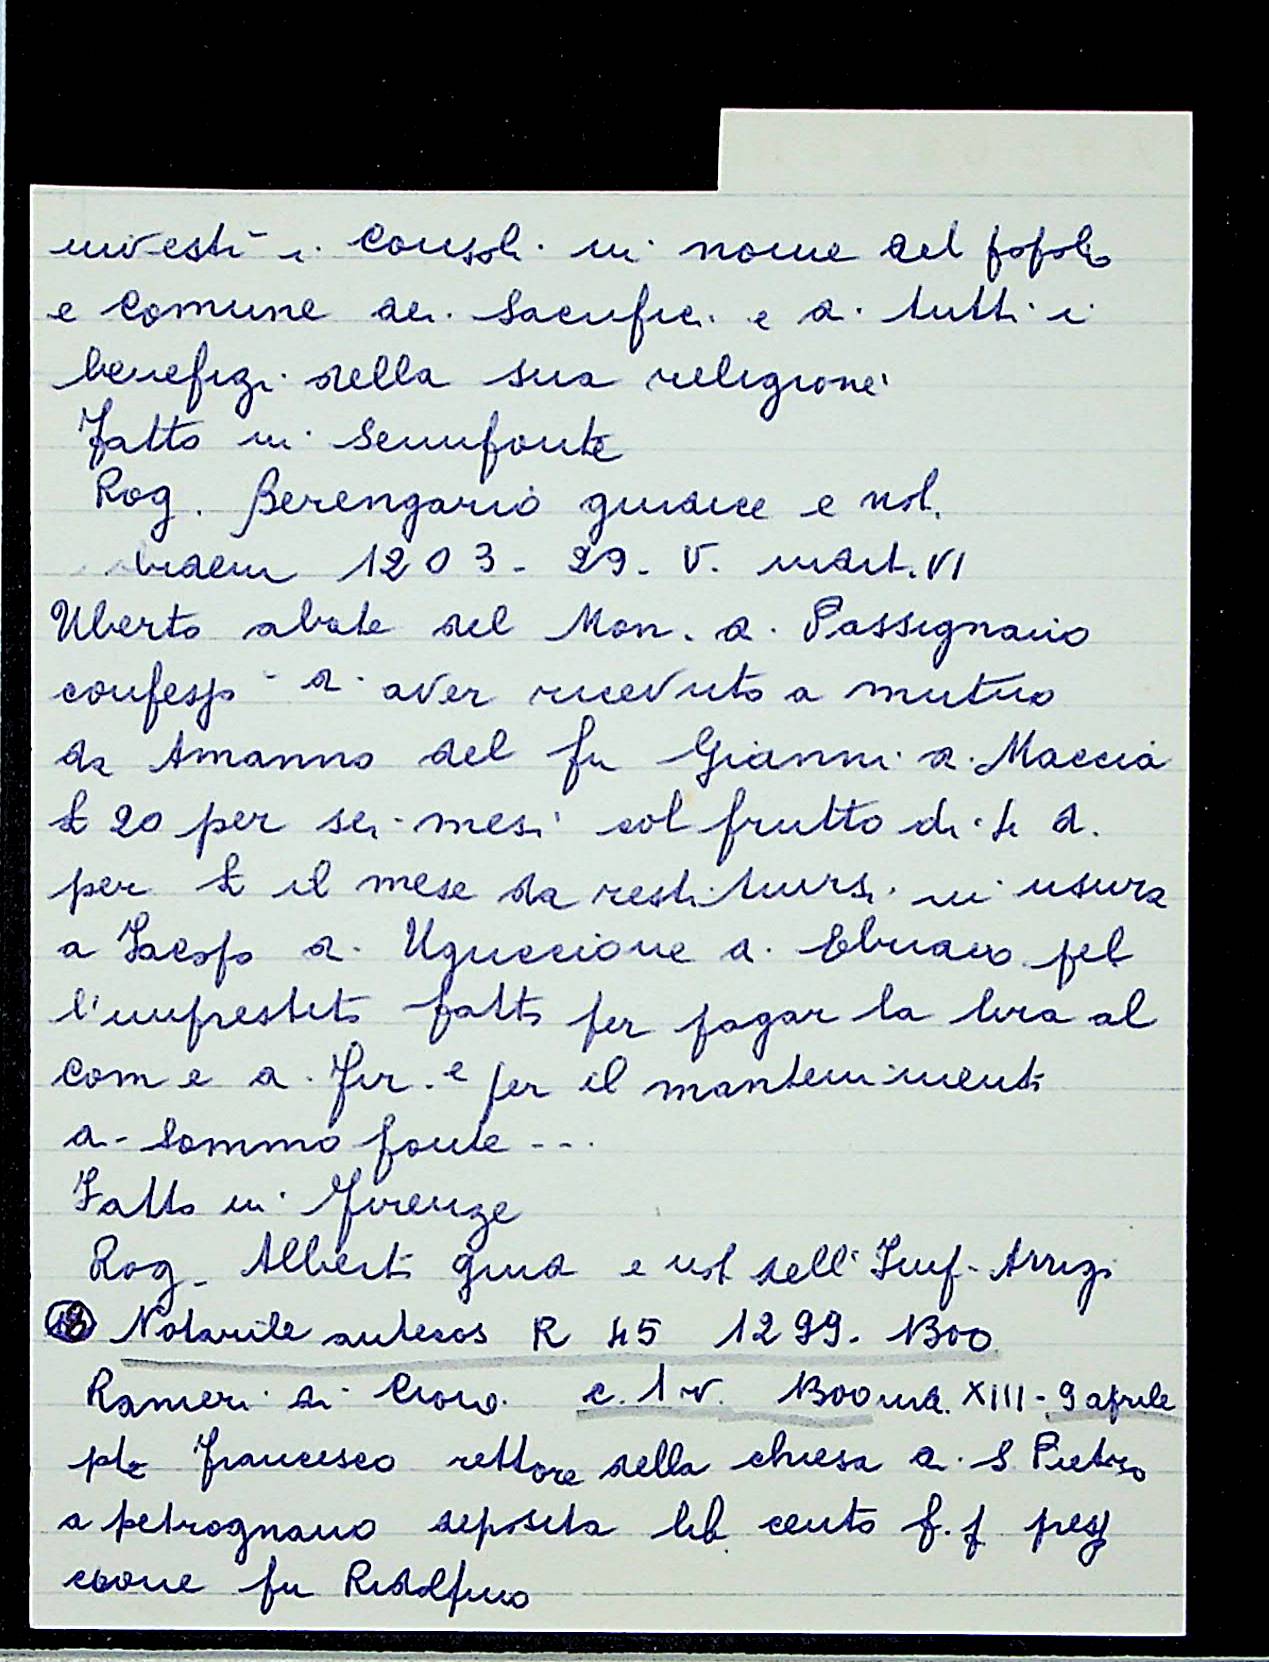 investì i consoli in nome del popolo
e comune dei sacrifici e di tutti i
benefizi della sua religione
Fatto in Semifonte
Rog. Berengario giudice e not.
ibidem 1203 - 29. V. indict. VI
Uberto abate del Mon. di Passignano
confessò di aver ricevuto a mutuo
da Amanno del fu Gianni di Maccia
£ 20 per sei mesi col frutto di 4 d.
per £ il mese da restituirsi in usura
a Jacopo di Uguccione di Ebriaco pel
l'imprestito fatto per pagar la lira al
com e di Fir. e per il mantenimenti
di Sommofonte ---
Fatto in Firenze
Rog. Alberti giud e not dell' Imp. Arrigi
Notarile antecos R 45 1299. 1300
Ranieri di c. 1 v. 1300 ind. XIII - 9 aprile
pte Francesco rettore della chiesa di S Pietro
a petrognano deposita lib cento f. f
cione fu Ridolfino